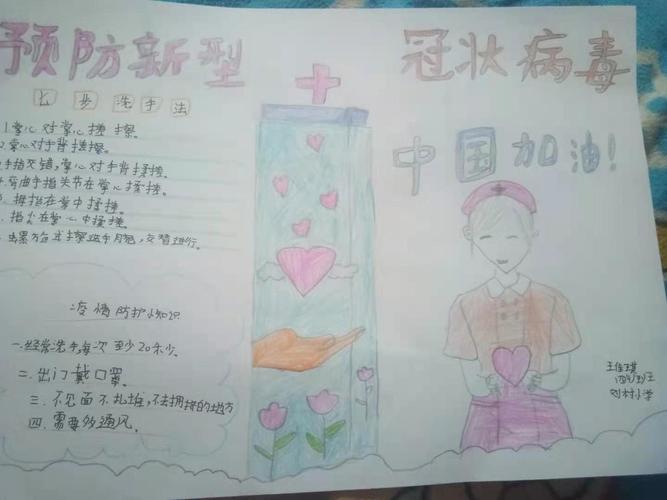 预防新型
冠状病毒
中国加油!
七步洗手法
1.掌心对掌心揉擦。
2.掌心对手背揉擦。
手指交错,掌心对手背揉搓。
弯曲手指关节在掌心揉搓。
拇指在掌中揉搓。
指尖在掌心中揉搓。
疫情防护小知识
一.经常洗手,每次至少20秒。
二.出门戴口罩。
三.不见面不扎堆,不去拥挤的地方
四.需要多通风。
刘村小学